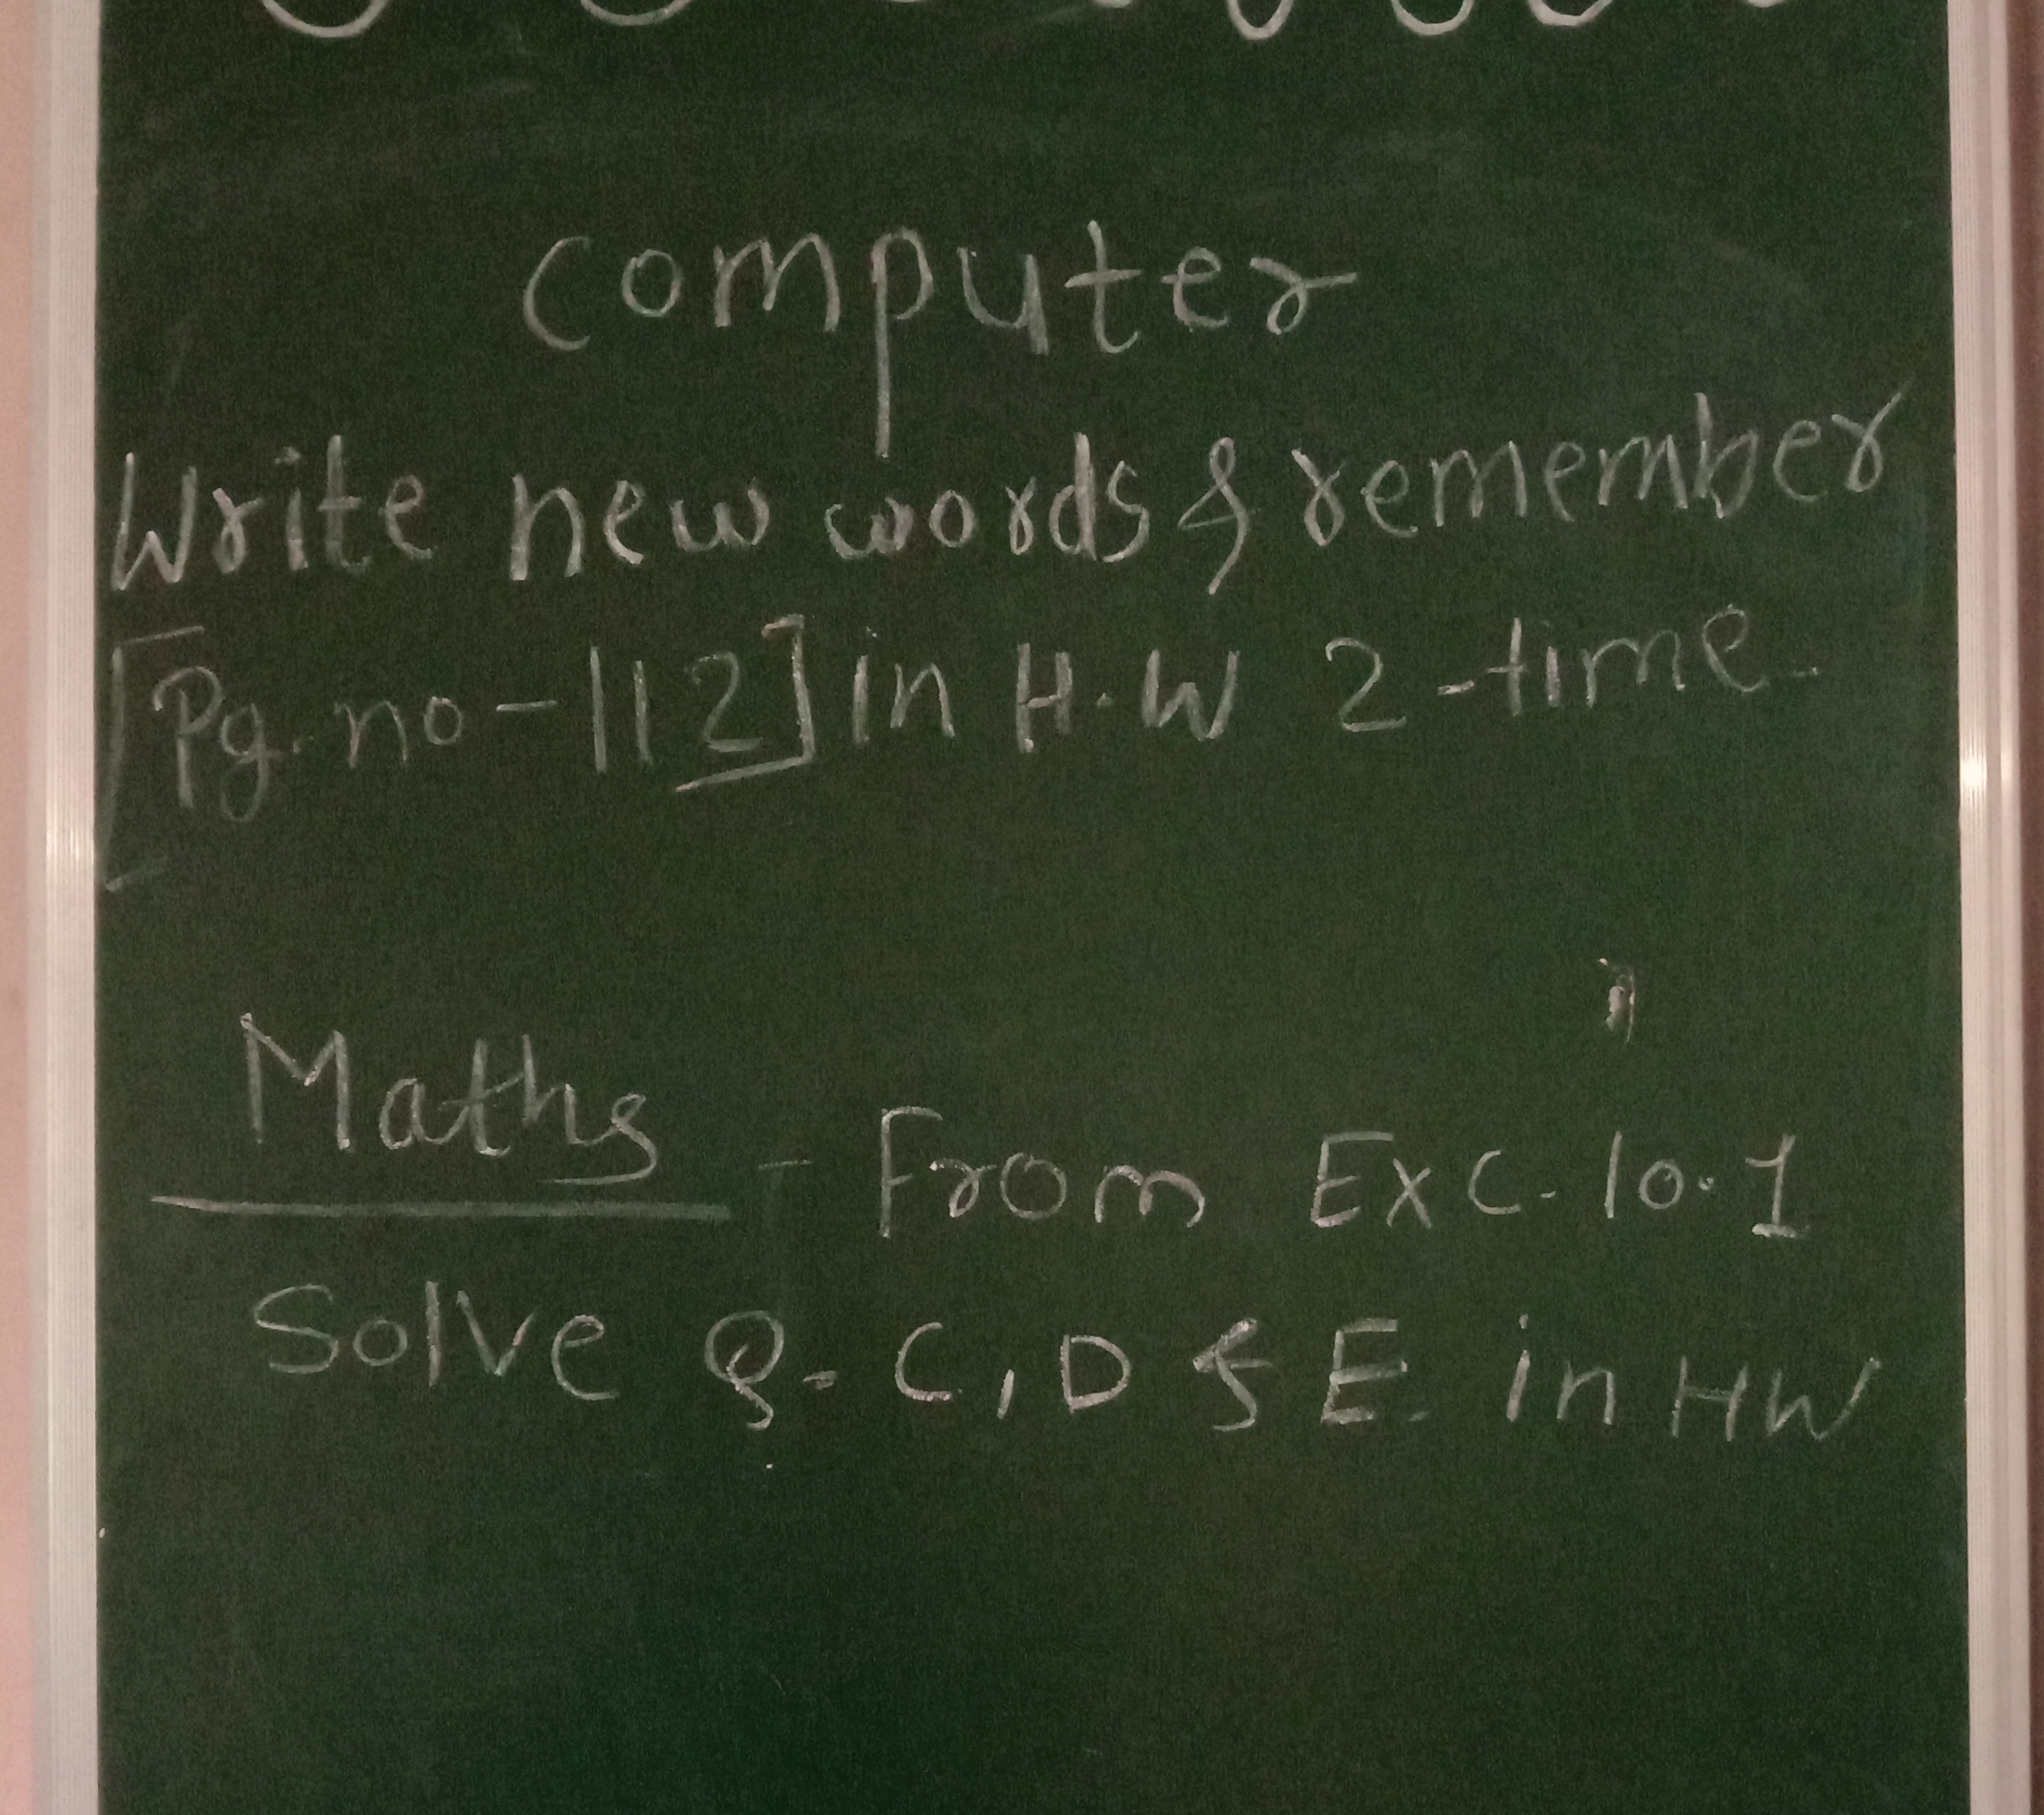 Computer
Write new words & remember
[Pg. no - 112] in H.W 2-time.
Maths - From Exc. 10.1
Solve Q. C, D & E. in HW